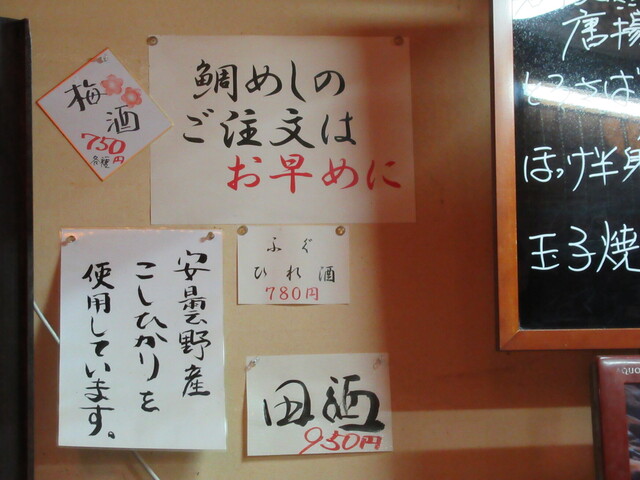 梅
酒
750
各種
円
鯛めしの
ご注文は
お早めに
安曇野産
こしひかりを
使用しています。
ふぐ
ひれ酒
780円
田酒
950円
唐揚
ほっけ半身
玉子焼